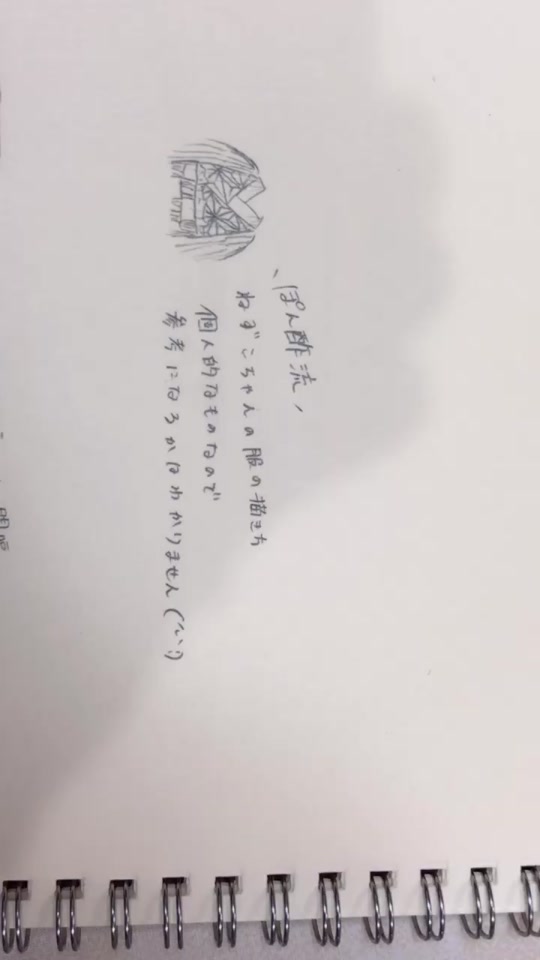 \ ぽん酢流 /
ねずこちゃんの服の描き方
個人的なものなので
参考になるかはわかりません